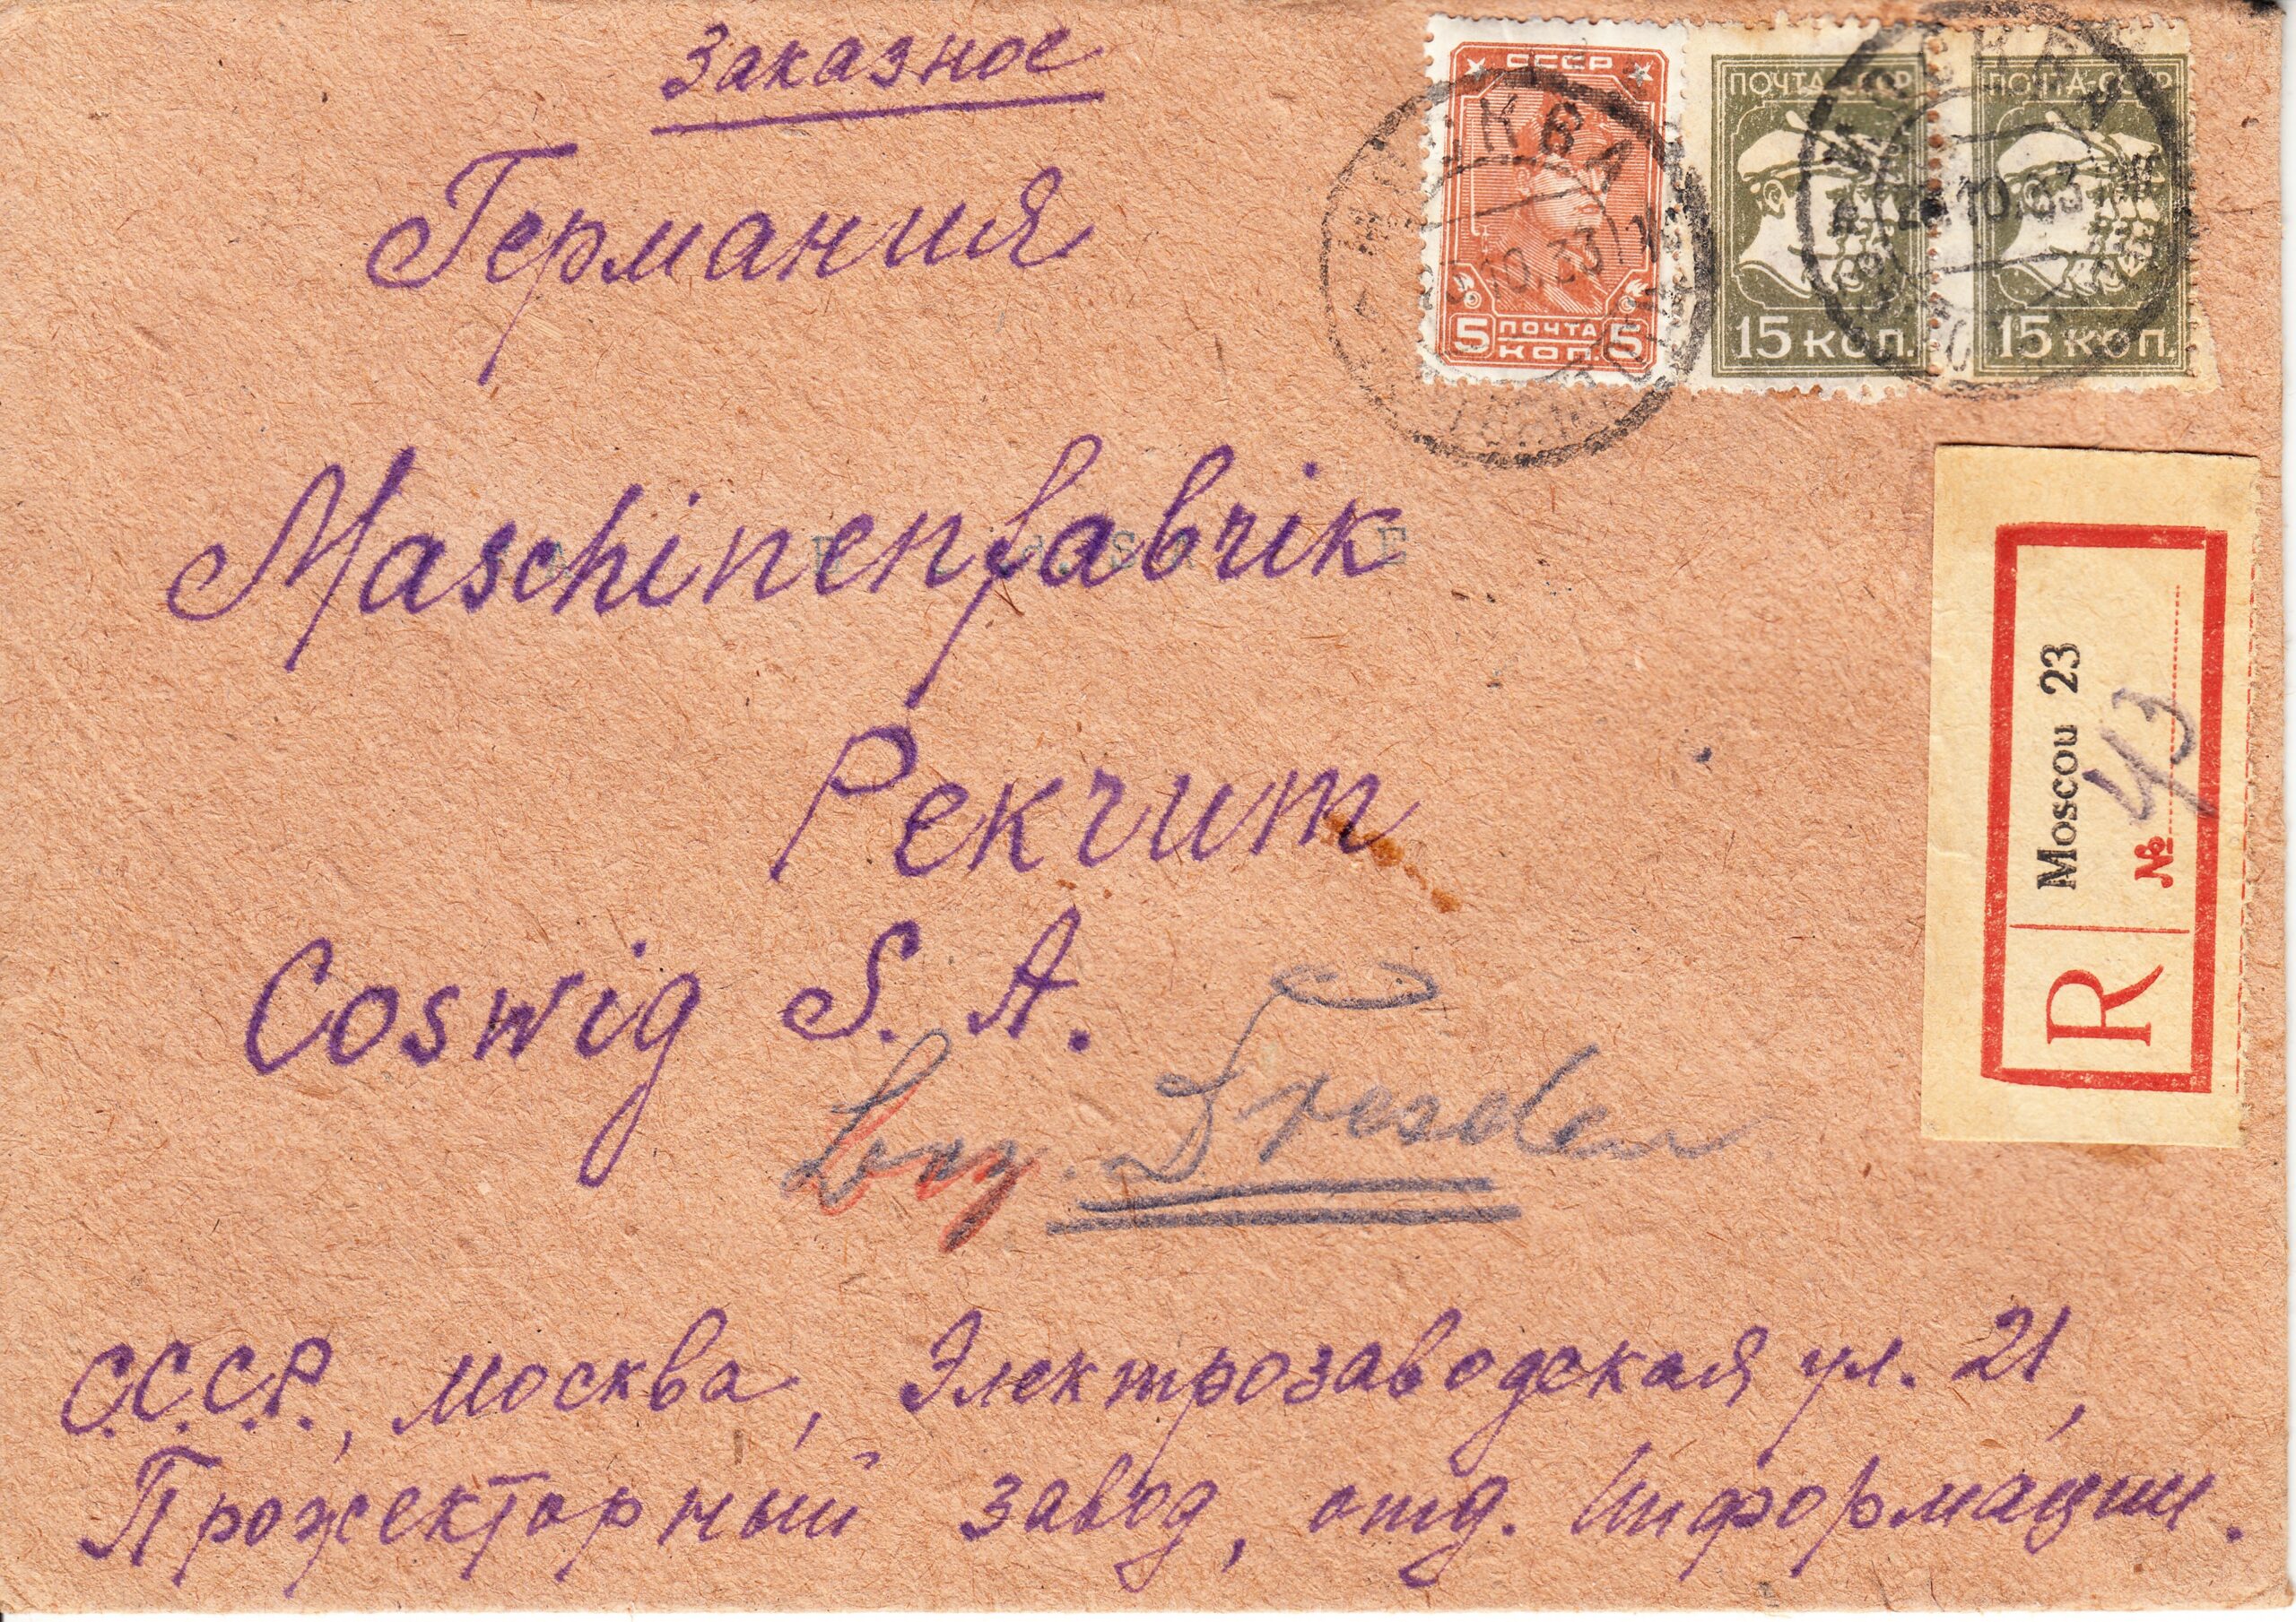 Заказное
Германия
СССР
5 ПОЧТА 5
КОП.
ПОЧТА-СССР
15 КОП.
ПОЧТА-СССР
15 КОП.
МОСКВА
10.33
Maschinenfabrik
Pekrum
Coswig S. A.
Bez. Dresden
R
Moscou 23
№ 43
С.С.С.Р., Москва, Электрозаводская ул. 21,
Прожекторный завод, отд. Информации.